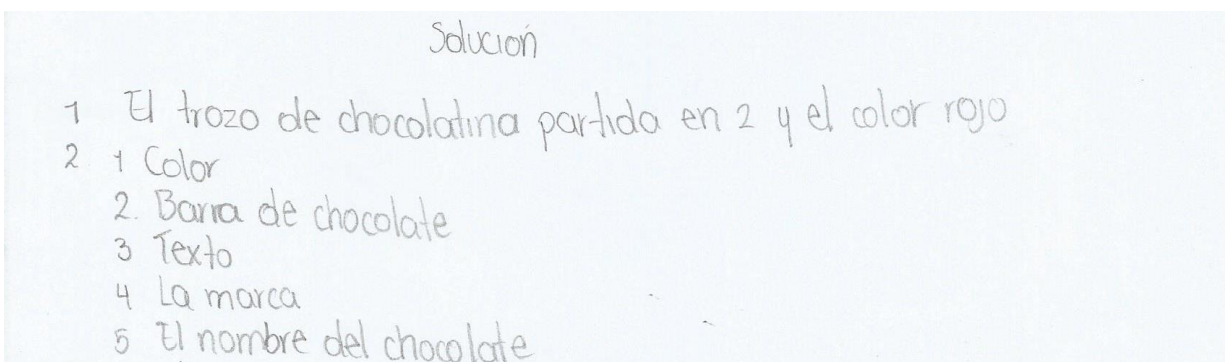 Solución
1 El trozo de chocolatina partida en 2 y el color rojo
2 1 Color
2. Barra de chocolate
3 Texto
4 La marca
5 El nombre del chocolate